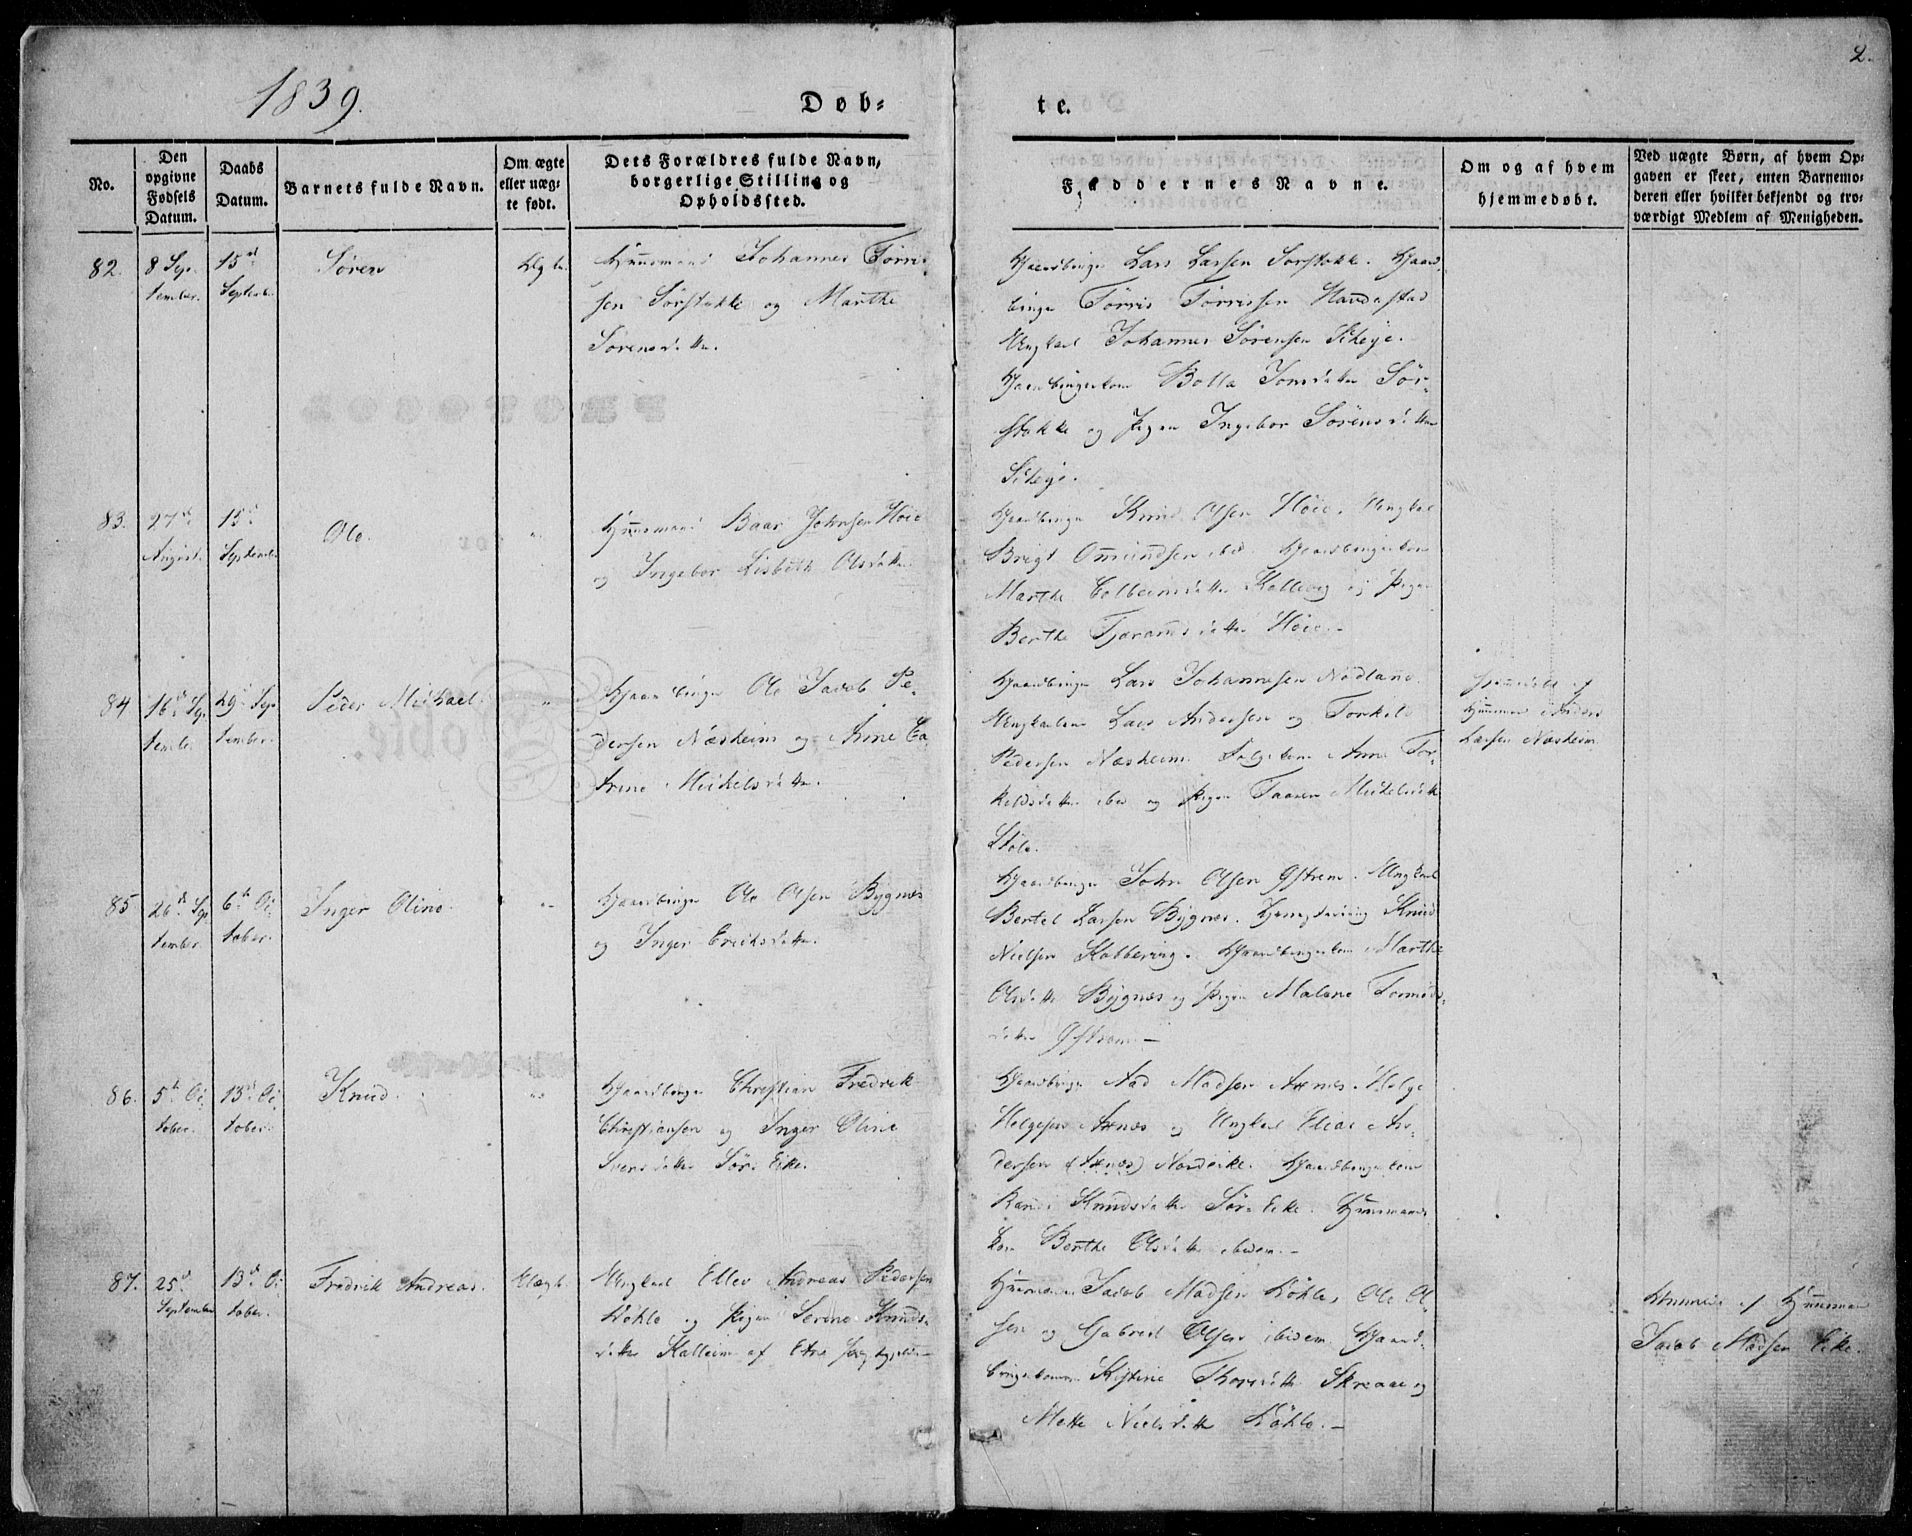 2.
1839.
Døb-
te.
No.
Den opgivne Fødsels Datum.
Daabs Datum.
Barnets fulde Navn.
Om ægte eller uægte født.
Dets Forældres fulde Navn, borgerlige Stilling og Opholdssted.
Faddernes Navne.
Om og af hvem hjemmedøbt.
Ved uægte Børn, af hvem Opgaven er skeet, enten Barnemoderen eller hvilket bekjendt og troværdigt Medlem af Menigheden.
82.
8 Sep-
tember.
15de
Septemb.
Søren
Ægte
Huusmand Johannes Tørris-
sen Sørstokke og Marthe
Sørensdatter.
Gaardbruger Lars Larsen Sørstokke. Gaard-
bruger Tørris Tørrissen Haudestad
Ungkarl Johannes Sørensen Skeje.
Gaardbrugerkone Bolla Jonsdatter Sør-
stokke og Pigen Ingebor Sørensdatter
Skeje.
83.
27de
August.
15de
Septembr.
Ole.
"
Huusmand Baar Johnsen Høie
og Ingebor Lisbeth Olsdatter
Gaardbruger Knud Olsen Høie. Ungkarl
Brigt Omundsen ibid. Gaardbrugerkone
Marthe Colbeinsdatter Kolleveg og Pigen
Berthe Tjeransdatter Høie.-
84
16de Sep-
tembr.
29de Sep-
tember.
Peder Michael.
"
Gaardbruger Ole Jacob Pe-
dersen Næsheim og Anne Ca-
trine Mickelsdatter.
Gaardbruger Lars Johannesen Nødland.
Ungkarlene Lars Andersen og Torkel
Pedersen Næsheim. Anne Tor-
kelsdatter ibid og Pigen Taaren Mickelsdatter
Støle.
Huusmand Anders
Larsen Næsheim
85
26de Sep-
tember.
6te Oc-
tober.
Inger Oline.
"
Gaardbruger Ole Olsen Bygnæs
og Inger Ericksdatter.
Gaardbruger John Olsen Østrem. Ungkarl
Bertel Larsen Bygnæs. Knud
Nielsen Kobbering. Gaardbrugerkone Marthe
Olsdatter Bygnæs og Pigen Malene Tormods-
datter Østrem.-
86.
5te Oc-
tober.
13de Oc-
tober.
Knud.
"
Gaardbruger Christian Fredrik
Christiansen og Inger Oline
Svensdatter Sør Eike.
Gaardbruger Aad Madsen Axnes. Helge
Helgesen Axnæs og Ungkarl Elias An-
dersen (Axnæs) Nordeike. Gaardbrugerkone
Knudsdatter Sør Eike. Huusmands
kone Berthe Olsdatter ibidem.-
87.
25de
September
13de Oc-
tober.
Fredrik Andreas.
Uægte
Ungkarl Ellev Andreas Pedersen
Køhle og Pigen Serine Knuds-
datter Kalleim af Etne Præstegjeld.-
Huusmand Jacob Madsen Køhle, Ole Ol-
sen og Gabriel Olsen ibidem. Gaard-
brugerkonerne Kistine Thorsdatter Skreaae og
Mette Nielsdatter Køhle.-
af Huusmand
Jacob Madsen Eike.